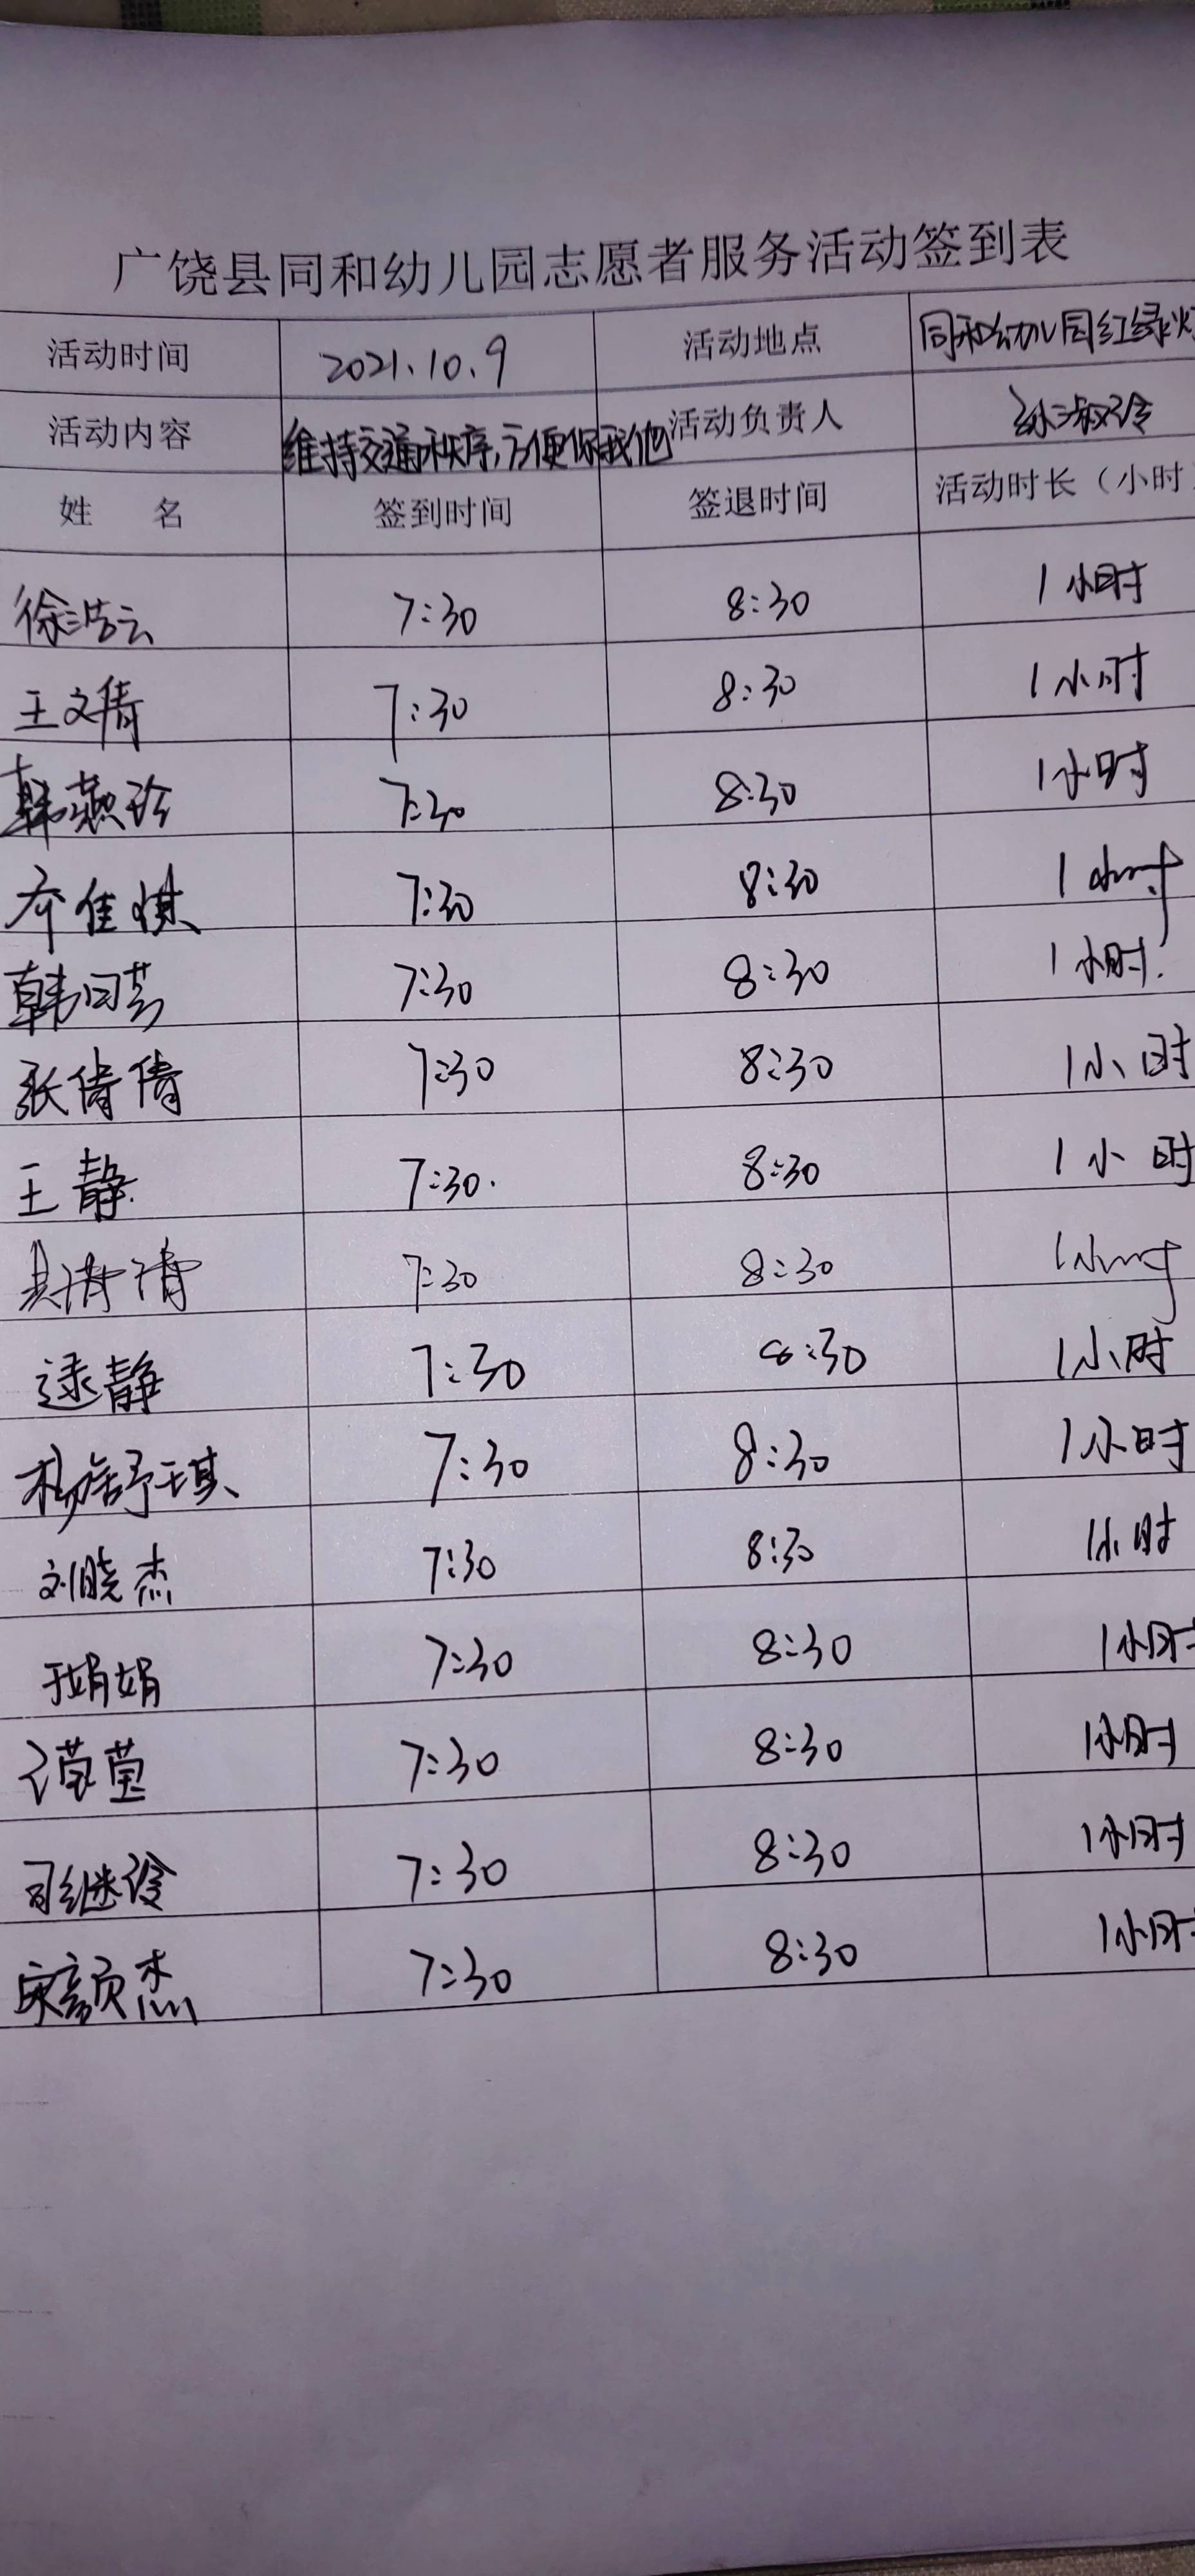 广饶县同和幼儿园志愿者服务活动签到表
活动时间 2021.10.9 活动地点 同和幼儿园红绿灯
活动内容 维持交通秩序,方便你我他 活动负责人 孙淑玲
姓 名 签到时间 签退时间 活动时长(小时
徐浩云 7:30 8:30 1小时
王文倩 7:30 8:30 1小时
韩燕珍 7:30 8:30 1小时
齐佳惿 7:30 8:30 1小时
韩同芸 7:30 8:30 1小时.
张倩倩 7:30 8:30 1小时
王静 7:30. 8:30 1小时
7:30 8:30 1小时
逯静 7:30 8:30 1小时
杨舒琪 7:30 8:30 1小时
刘晓杰 7:30 8:30 1小时
于娟娟 7:30 8:30 1小时
7:30 8:30 1小时
司继玲 7:30 8:30 1小时
宋颜杰 7:30 8:30 1小时